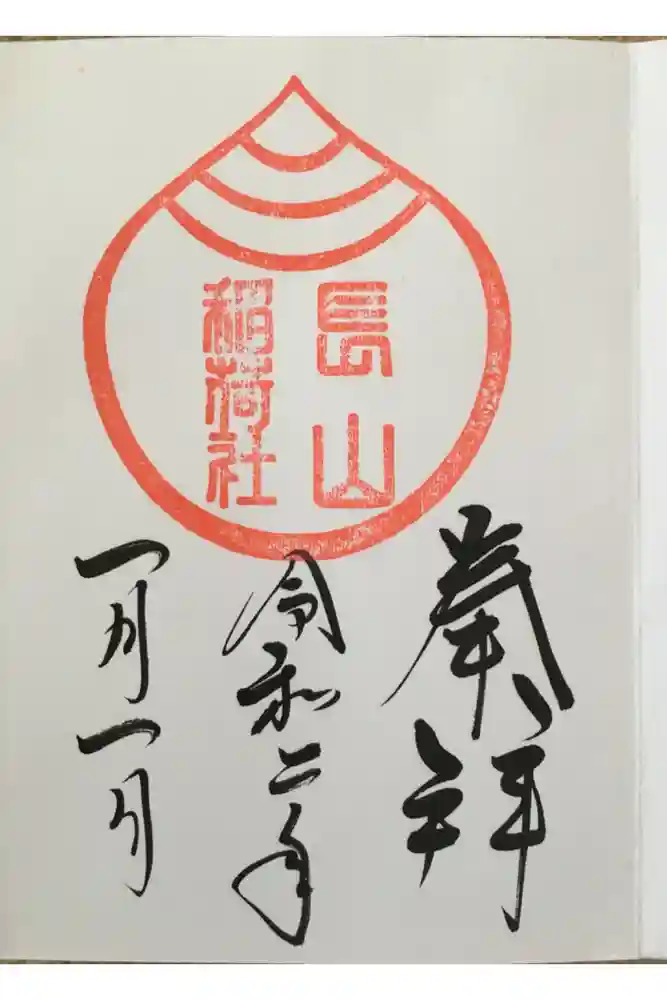 長山
稲荷社
奉拝
令和二年
一月一月